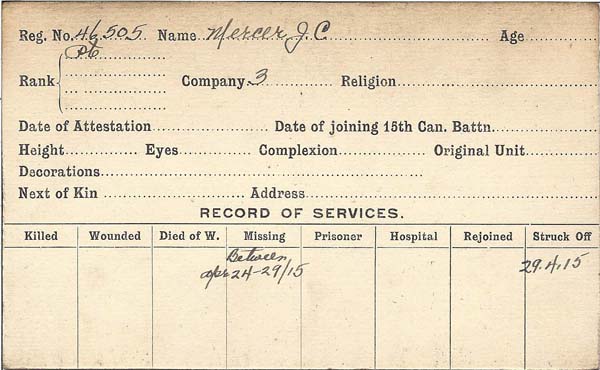 Reg. No. 46505 Name Mercer J. C Age
Pte
Rank Company 3 Religion
Date of Attestation Date of joining 15th Can. Battn.
Height Eyes Complexion Original Unit
Decorations
Next of Kin Address
RECORD OF SERVICES.
Killed Wounded Died of W. Missing Prisoner Hospital Rejoined Struck Off
Between 29.4.15
apr 24-29/15